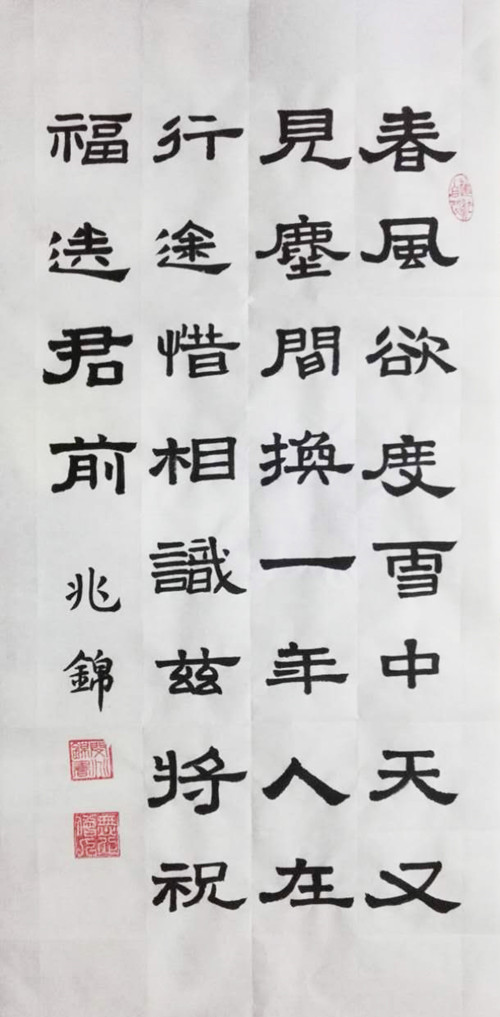 春風欲度雪中天又
見塵間換一年人在
行途惜相識兹將祝
福送君前 兆錦